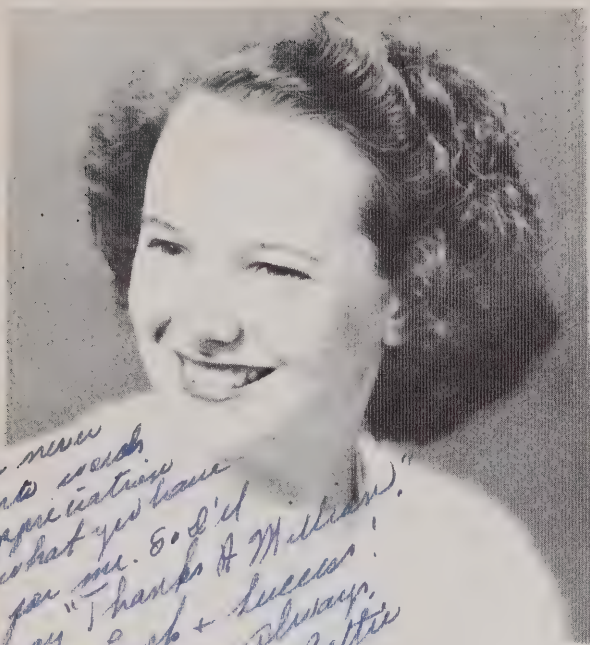 never
into words
appreciation
what you have
for me. So I'll
"Thanks A Million".
Luck + Success!
Always,
Bettie